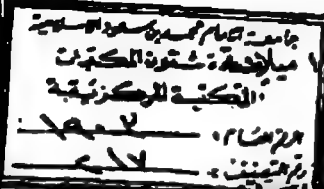 جامعة الإمام محمد بن سعود الإسلامية
عمادة شئون المكتبات
المكتبة المركزية
الرقم العام:
رقم التصنيف: